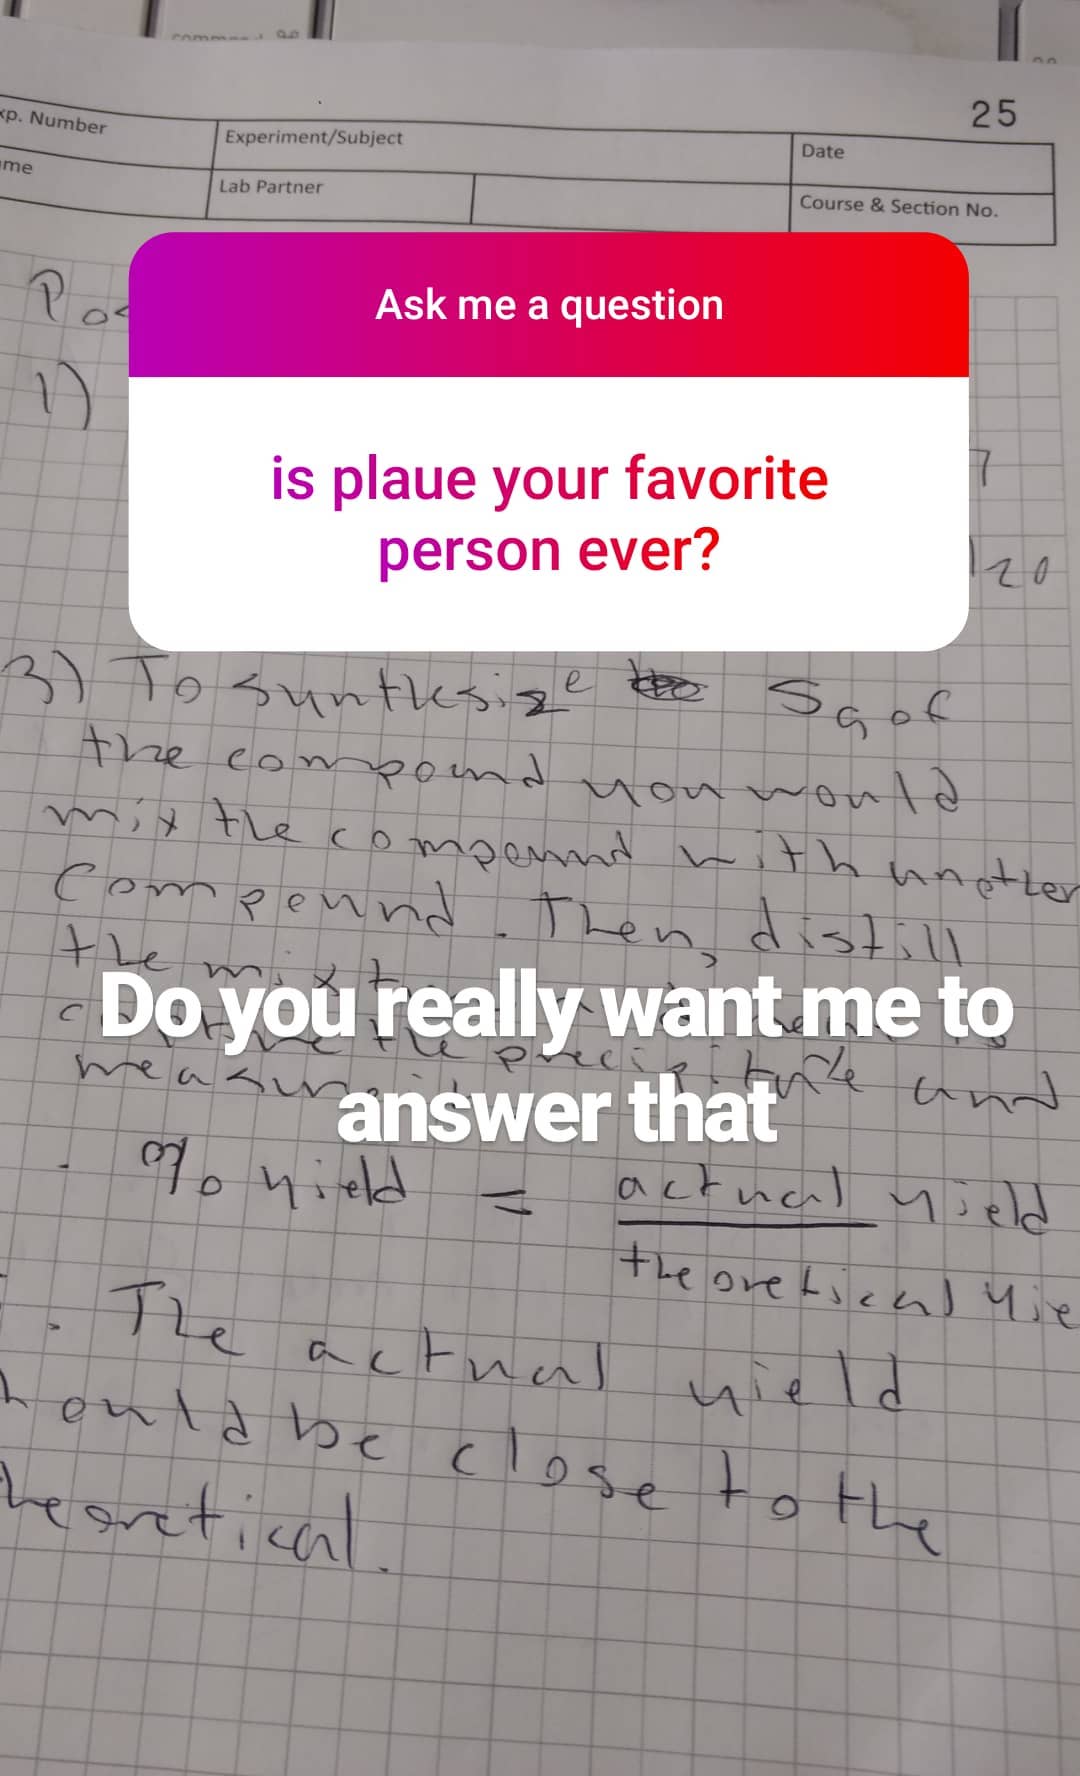 25
xp. Number
Experiment/Subject
Date
me
Lab Partner
Course & Section No.
Ask me a question
is plaue your favorite
person ever?
1)
7
120
3) To sunthesize 5g of
the compound you would
mix the compound with another
Compound. Then, distill
the
Do you really want me to
the precipitate and
answer that
% yield = actual yield
theoretical yie
. The actual yield
hould be close to the
heoretical.